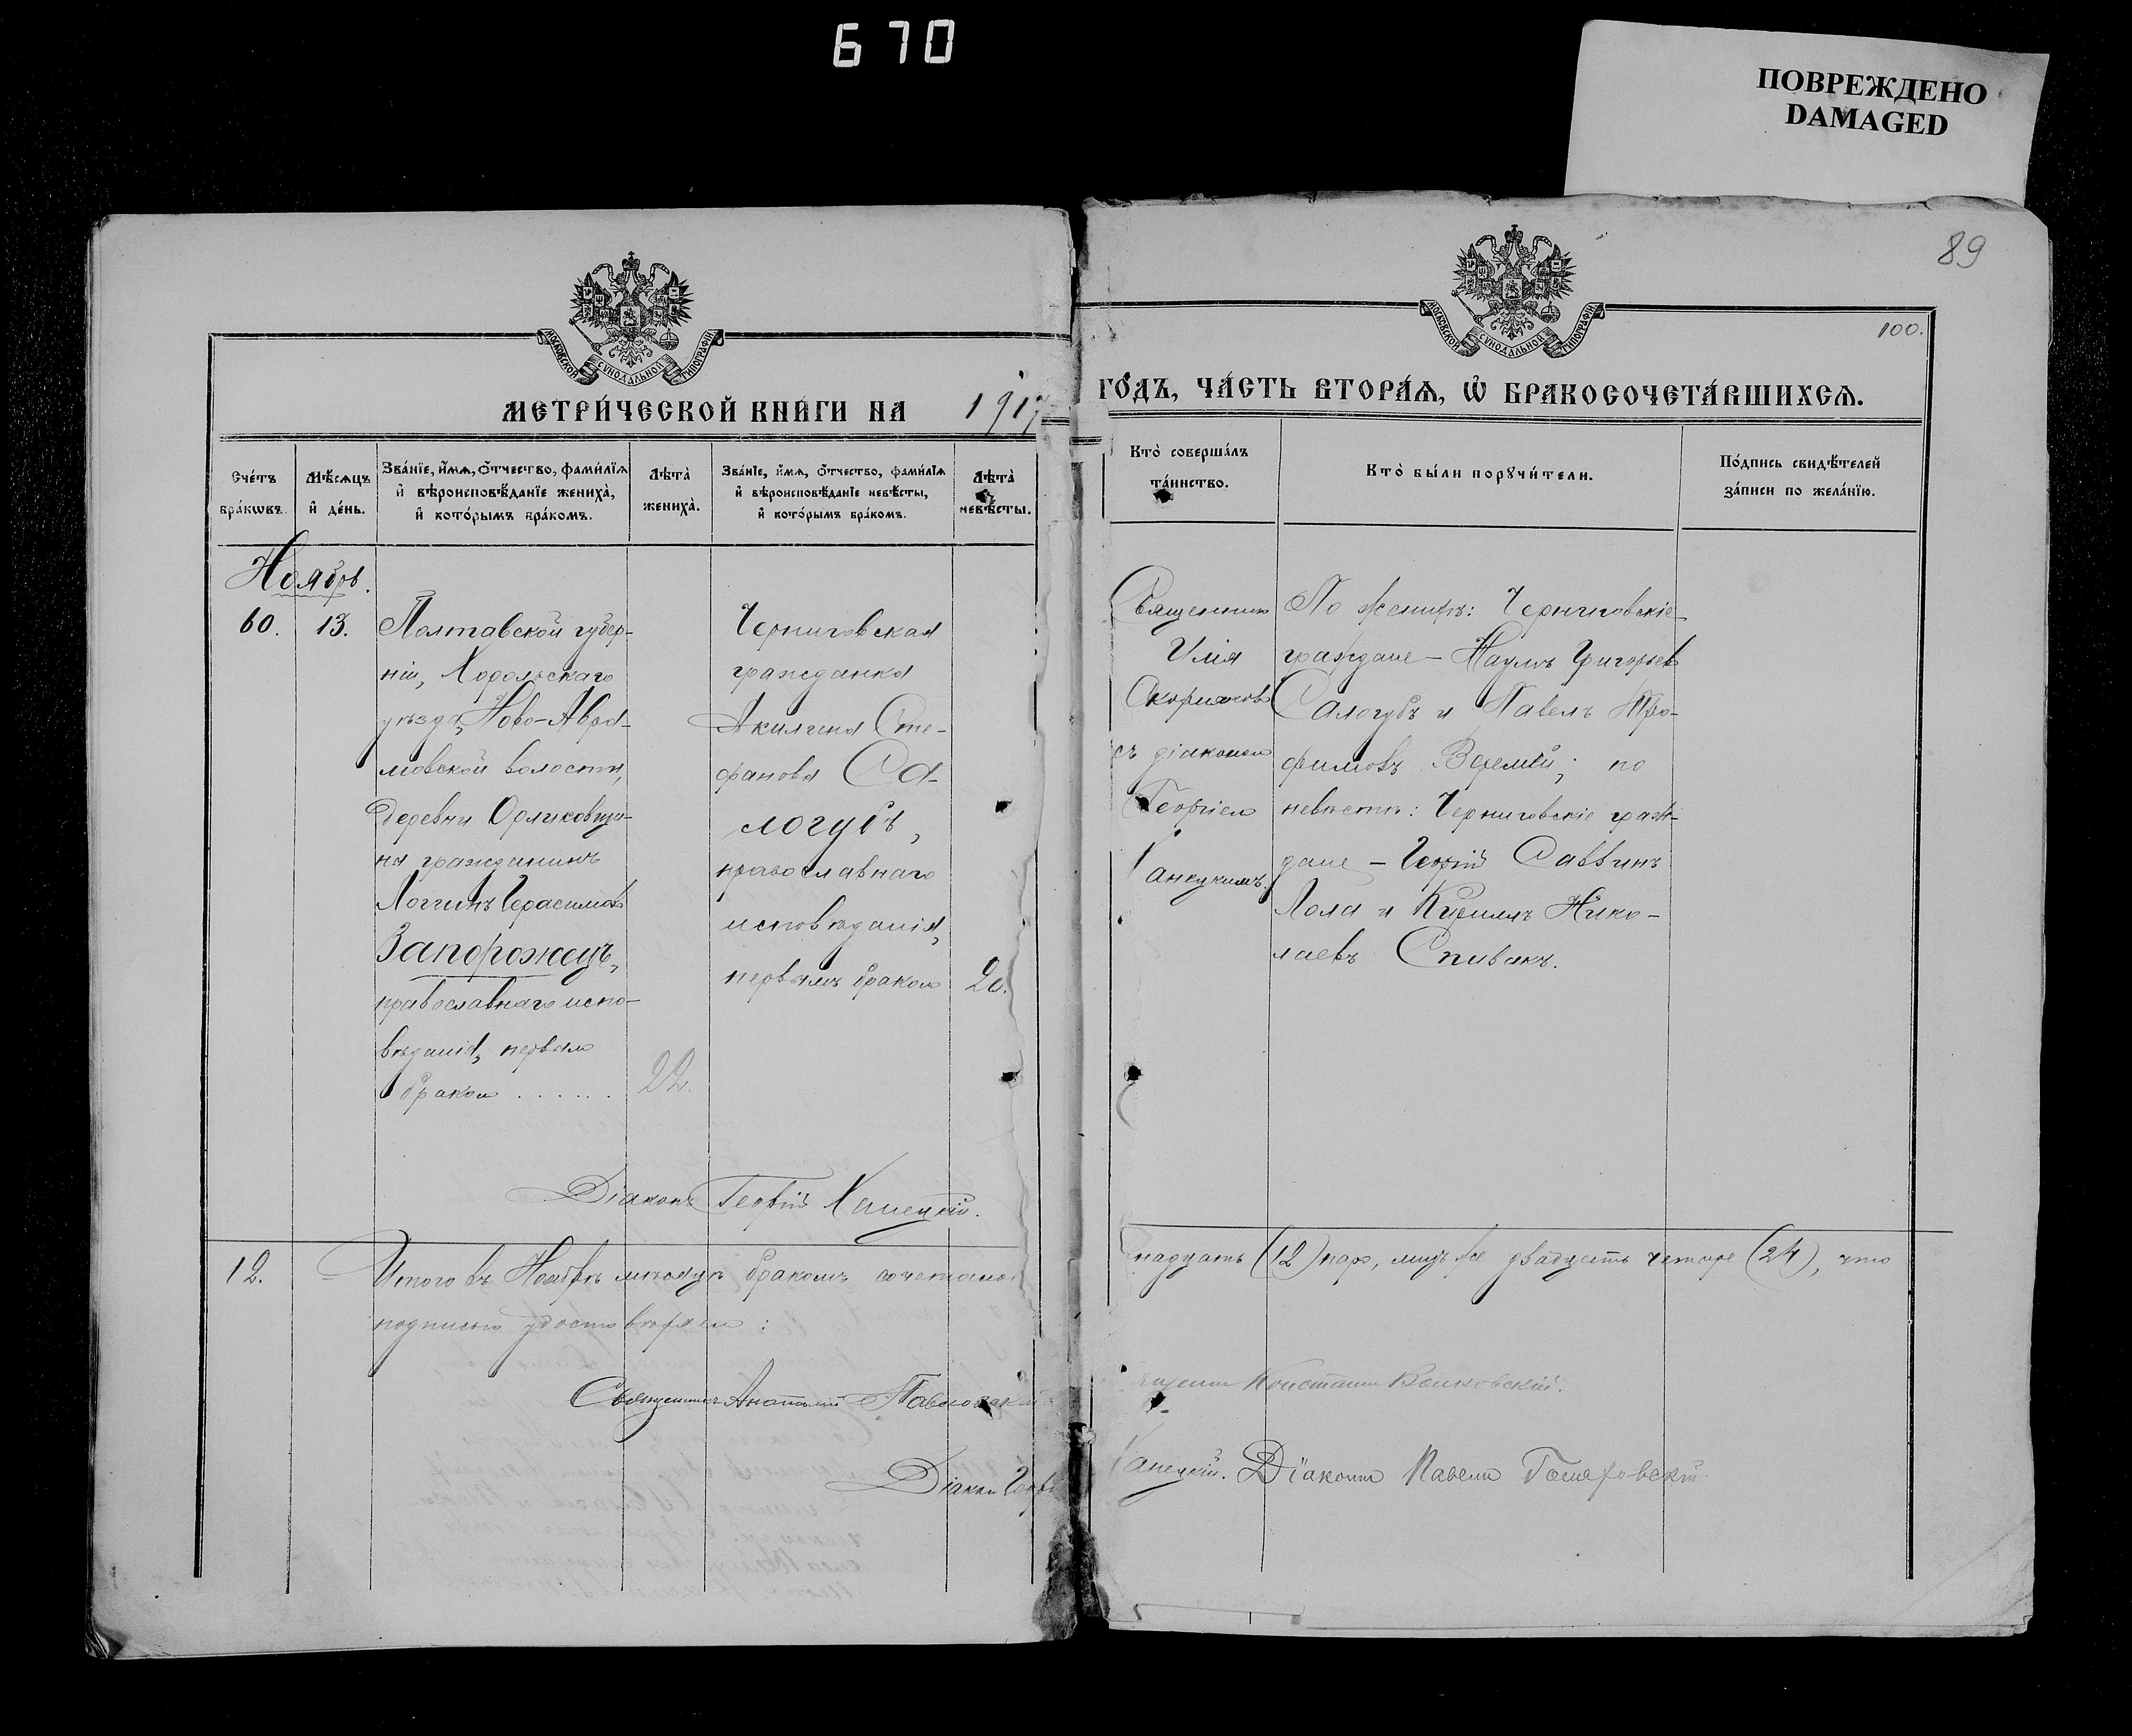 670
ПОВРЕЖДЕНО
DAMAGED
89
100.
МОСКОВСКОЙ СѴНОДАЛЬНОЙ ТИПОГРАФІИ
МОСКОВСКОЙ СѴНОДАЛЬНОЙ ТИПОГРАФІИ
МЕТРИ́ЧЕСКОЙ КНИ́ГИ НА 1917
ГО́ДЪ, ЧА́СТЬ ВТОРА́Ѧ, Ѡ҆ БРАКОСОЧЕТА́ВШИХСѦ.
Сче́тъ
бра́кѡвъ.
Мѣ́сѧцъ
и҆ де́нь.
Зва́нїе, и҆́мѧ, о҆́тчество, фами́лїѧ
и҆ вѣроисповѣ́данїе жениха̀,
и҆ кото́рымъ бра́комъ.
Лѣ́та̀
жениха̀.
Зва́нїе, и҆́мѧ, о҆́тчество, фами́лїѧ
и҆ вѣроисповѣ́данїе невѣ́сты,
и҆ кото́рымъ бра́комъ.
Лѣ́та̀
невѣ́сты.
Кто̀ соверша́лъ
та́инство.
Кто̀ бы́ли порꙋчи́тели.
По́дпись свидѣ́телей
за́писи по жела́нїю.
Ноябрь.
60. 13.
Полтавской губер-
ніи, Хорольскаго
уѣзда, Ново-Авра-
мовской волости,
деревни Орликовщи-
на гражданинъ
Логгинъ Герасимовъ
Запорожецъ,
православнаго испо-
вѣданія, первымъ
бракомъ . . . . . .
22.
Черниговская
гражданка
Акилина Сте-
фанова Са-
логубъ,
православнаго
исповѣданія,
первымъ бракомъ
20.
Священникъ
Илія
съ діакономъ
Георгіемъ
Ханецкимъ.
По женихѣ: Черниговскіе
граждане - Наумъ Григорьевъ
Салогубъ и Павелъ Тро-
фимовъ Веремѣй; по
невѣстѣ: Черниговскіе граж-
дане - Георгій Саввинъ
Лола и Кириллъ Нико-
лаевъ Спивакъ.
Діаконъ Георгій Ханецкій.
12. Итого въ Ноябрѣ мѣсяцѣ бракомъ сочетано
надцать (12) паръ, лицъ же двадцать четыре (24), что
подписью удостовѣряемъ:
Священникъ Анатолій
Константинъ
Діаконъ
Ханецкій. Діаконъ Павелъ